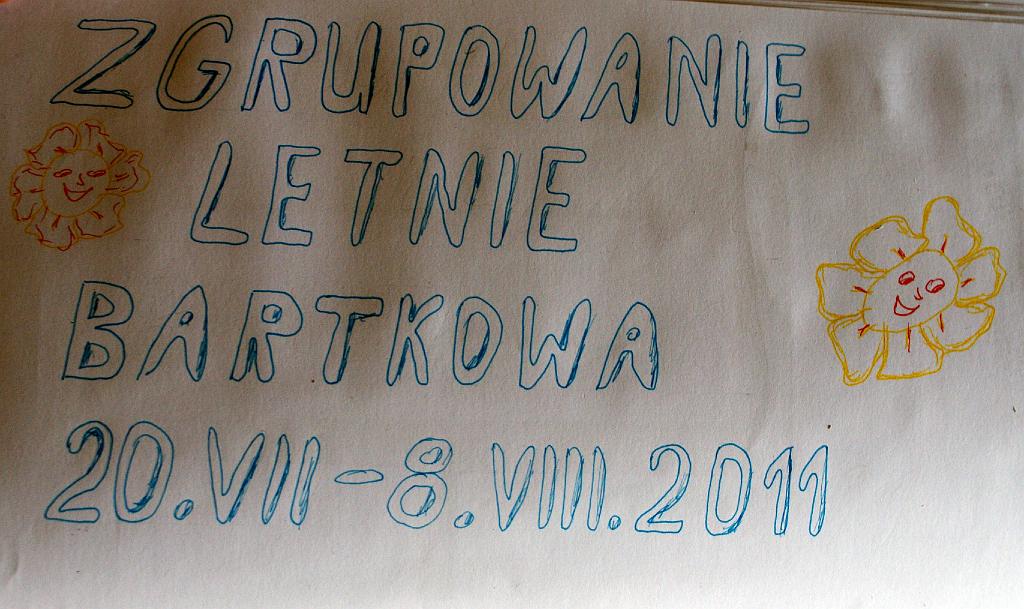 ZGRUPOWANIE
LETNIE
BARTKOWA
20.VII-8.VIII.2011